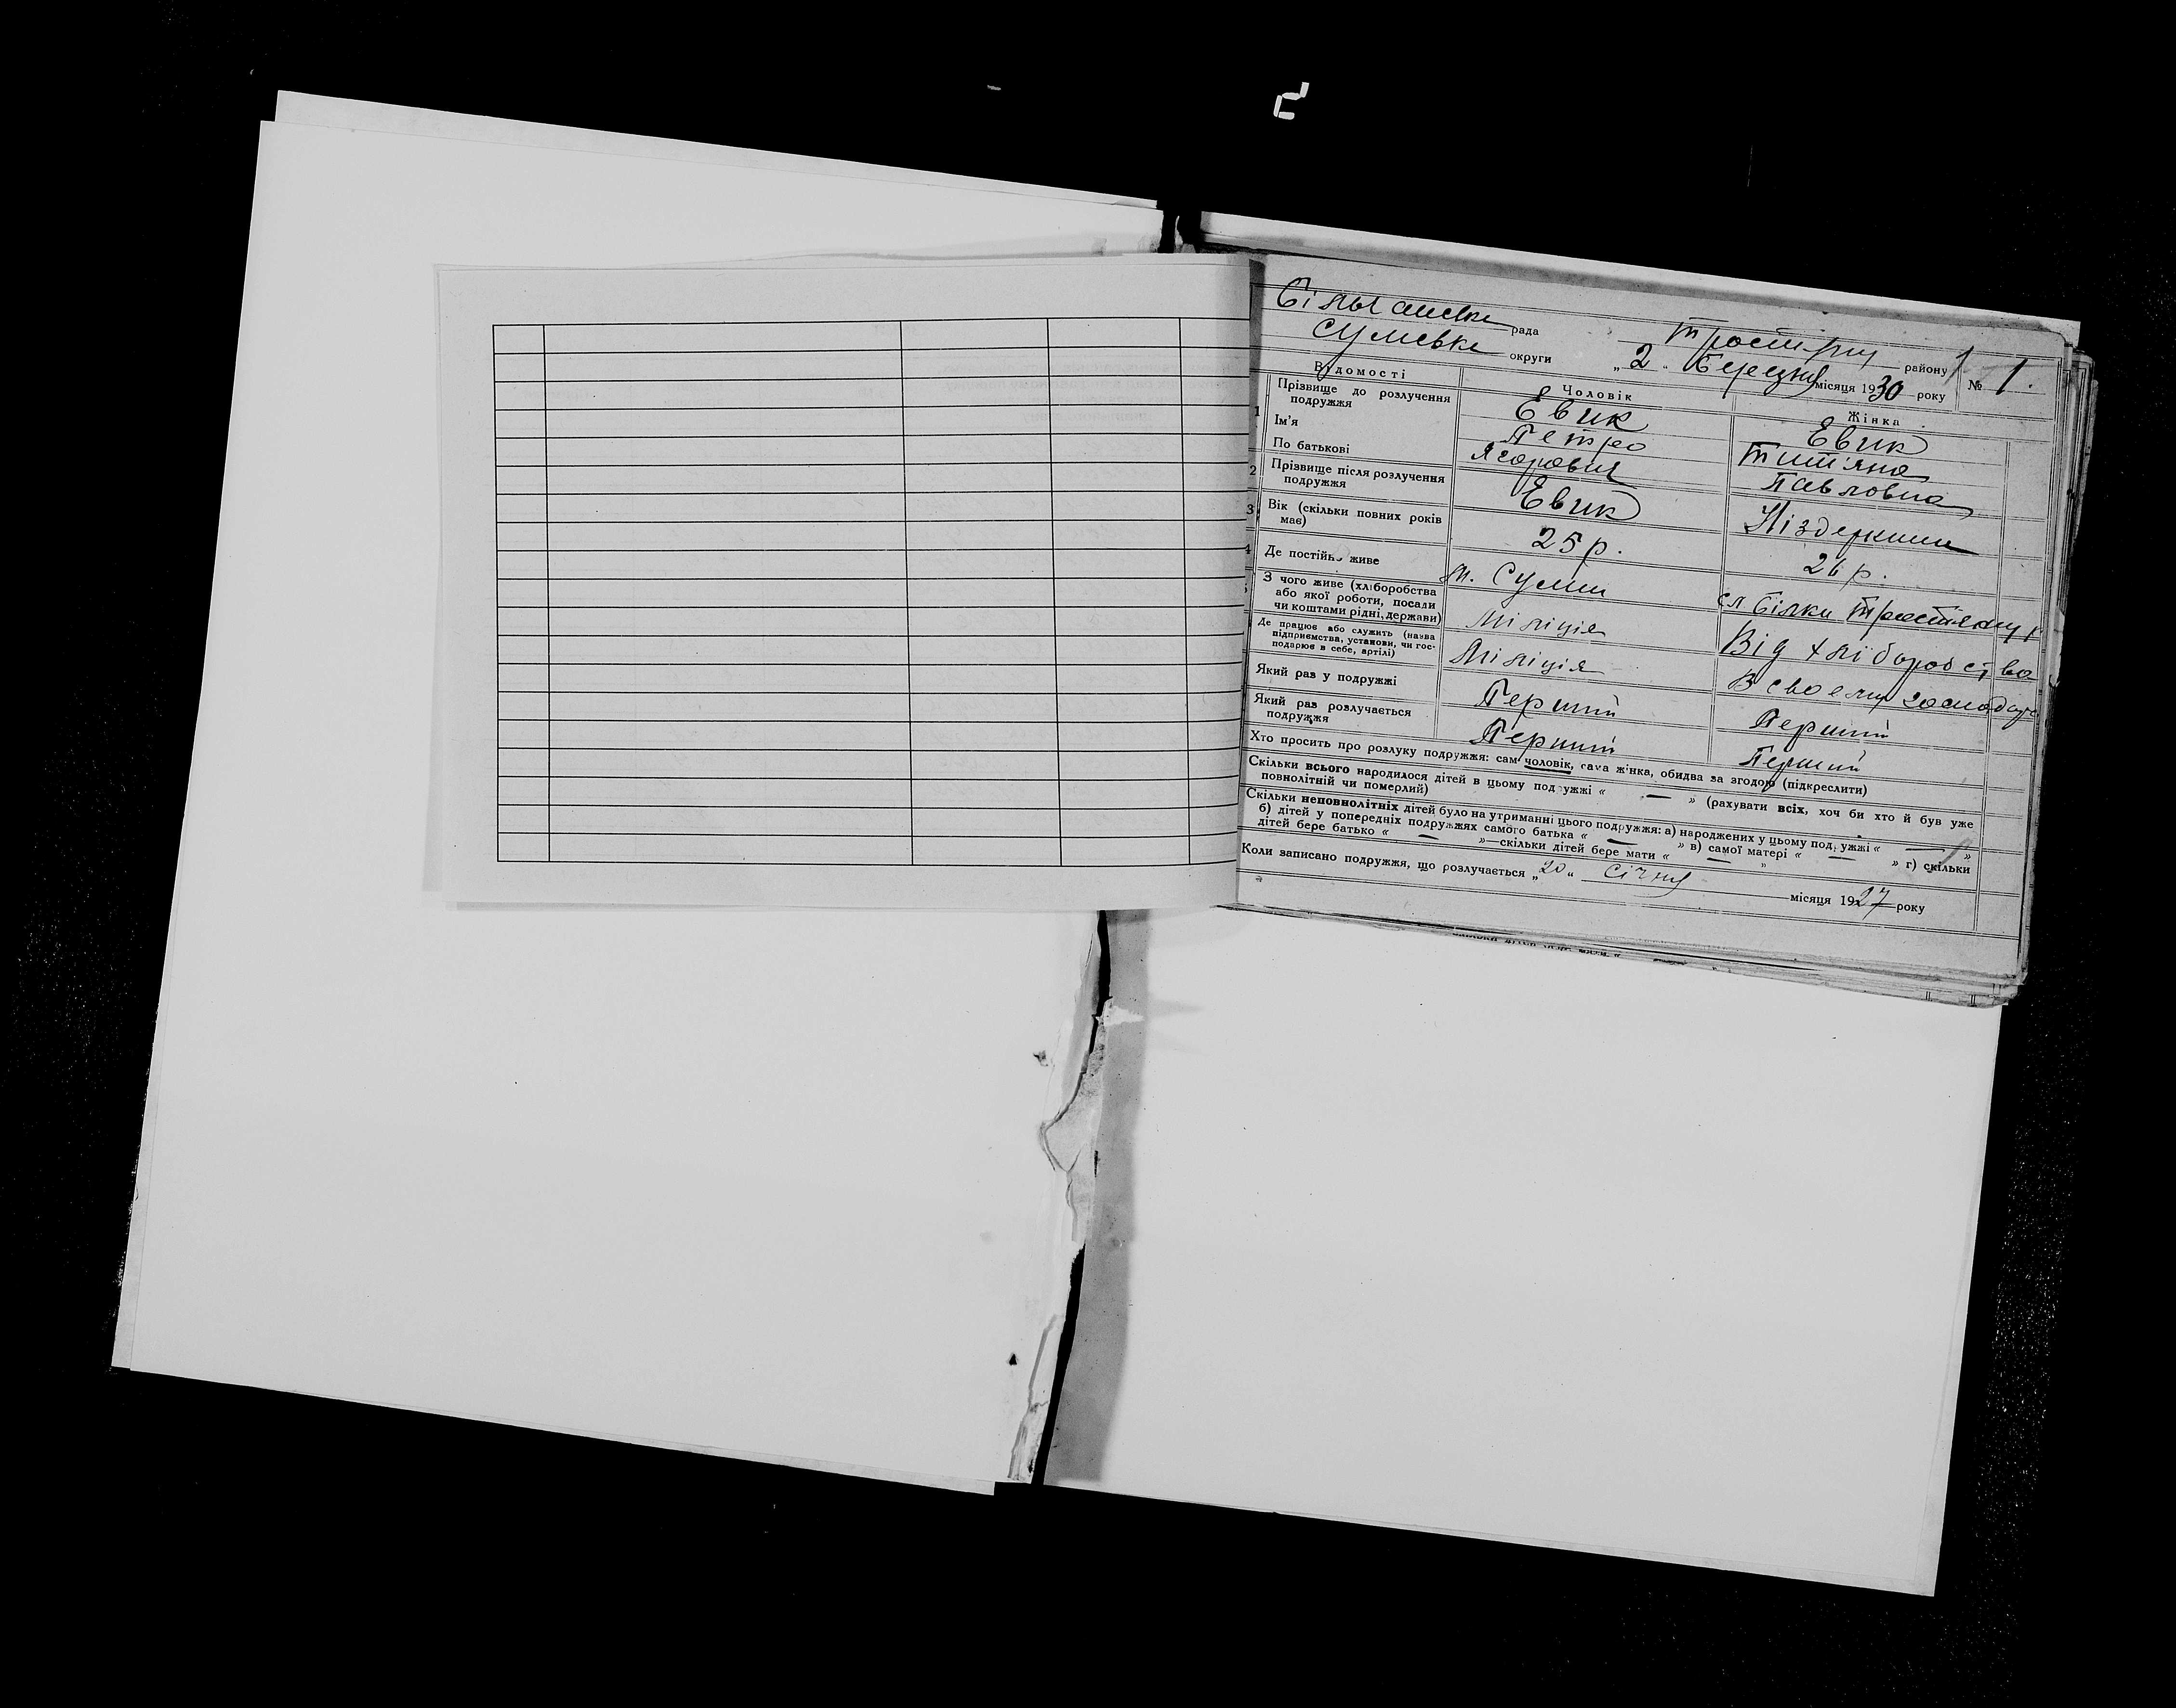 рада
Тростян району
округи „ 2 “ Березня місяця 1930 року № 1.
Відомості Чоловік Жінка
1 Прізвище до розлучення подружжя Евик Евик
Ім'я Петро
По батькові Павловна
2 Прізвище після розлучення подружжя Евик
3 Вік (скільки повних років має) 25 р. 26 р.
4 Де постійно живе м. Суми сл Білки
З чого живе (хліборобства або якої роботи, посади чи коштами рідні, держави) Міліція Від хліборобства
Де працює або служить (назва підприємства, установи, чи господарює в себе, артілі) Міліція В своему
Який раз у подружжі Перший Перший
Який раз розлучається подружжя Перший Перший
Хто просить про розлуку подружжя: сам чоловік, сама жінка, обидва за згодою (підкреслити)
Скільки всього народилося дітей в цьому подружжі « — » (рахувати всіх, хоч би хто й був уже
повнолітній чи померлий)
Скільки неповнолітніх дітей було на утриманні цього подружжя: а) народжених у цьому подружжі « — »
б) дітей у попередніх подружжях самого батька « — » в) самої матері « — » г) скільки
дітей бере батько « — »—скільки дітей бере мати « — »
Коли записано подружжя, що розлучається „20“ січня місяця 1927 року